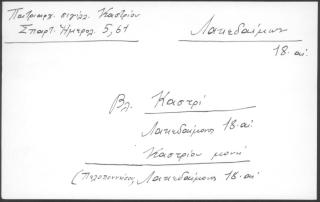 Πατριαρχ. σιγίλλ. Καστρίου
Σπαρτ. Ημερολ. 5, 61
Λακεδαίμων
18. αἰ
Βλ. Καστρί
Λακεδαίμονος 18. αἰ
Καστρίου μονή
(Πελοπόννησος, Λακεδαίμονος 18. αἰ